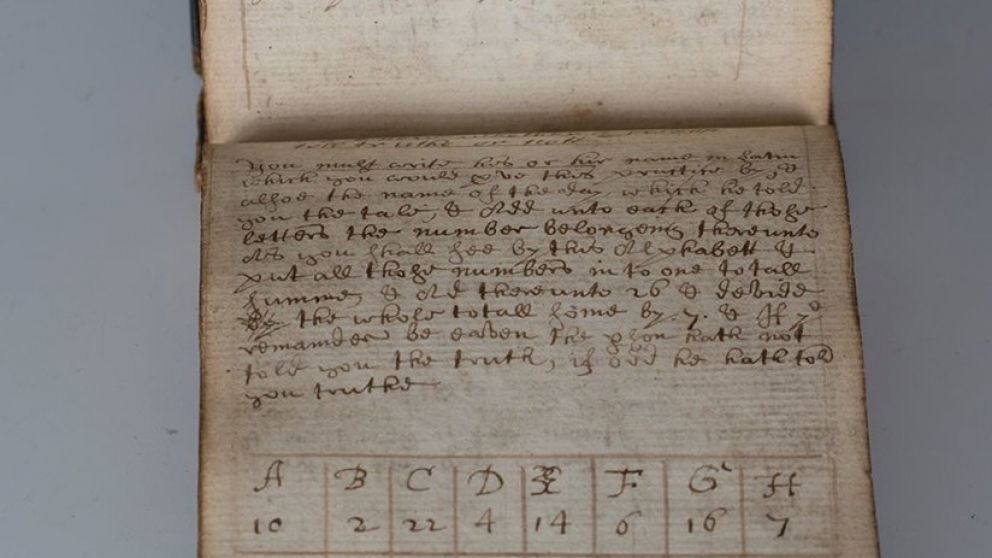 tell truth or not
You must write his or her name in Latin
which you would prve this practice by, &
allsoe the name of the day which he told
you the tale, & Add unto each of those
letters the number belongeng thereunto
As you shall see by this Alphabett &
put all those numbers in to one totall
summe, & Ad thereunto 26 & devide
the whole totall some by .7. & If ye
remainder be eaven the pson hath not
told you the truth, if odd he hath told
you truthe
A B C D E F G H
10 2 22 4 14 6 16 7